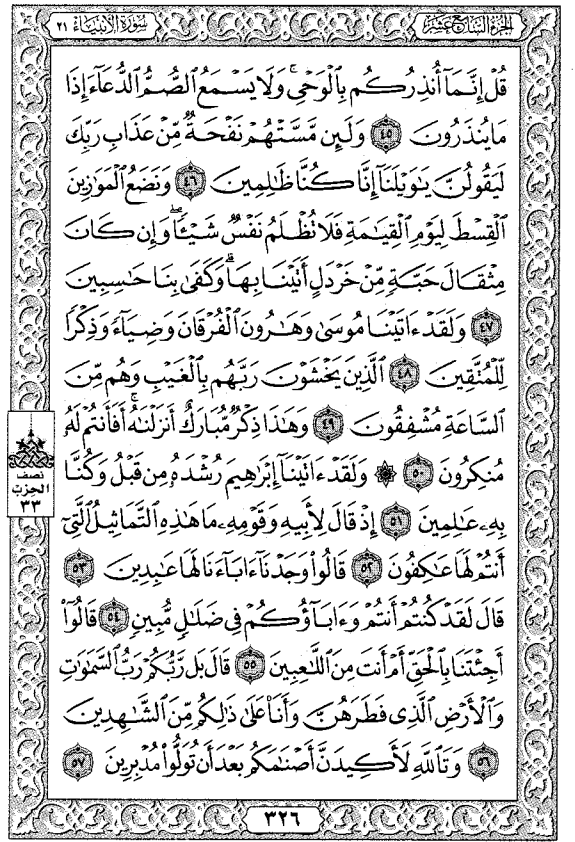 الجزء السابع عشر
سورة الأنبياء ٢١
قُلْ إِنَّمَآ أُنذِرُكُم بِالْوَحْيِ ۚ وَلَا يَسْمَعُ الصُّمُّ الدُّعَآءَ إِذَا
مَا يُنذَرُونَ ٤٥ وَلَئِن مَّسَّتْهُمْ نَفْحَةٌ مِّنْ عَذَابِ رَبِّكَ
لَيَقُولُنَّ يَٰوَيْلَنَآ إِنَّا كُنَّا ظَٰلِمِينَ ٤٦ وَنَضَعُ الْمَوَٰزِينَ
الْقِسْطَ لِيَوْمِ الْقِيَٰمَةِ فَلَا تُظْلَمُ نَفْسٌ شَيْـًٔا ۖ وَإِن كَانَ
مِثْقَالَ حَبَّةٍ مِّنْ خَرْدَلٍ أَتَيْنَا بِهَا ۗ وَكَفَىٰ بِنَا حَٰسِبِينَ
٤٧ وَلَقَدْ ءَاتَيْنَا مُوسَىٰ وَهَٰرُونَ الْفُرْقَانَ وَضِيَآءً وَذِكْرًا
لِّلْمُتَّقِينَ ٤٨ الَّذِينَ يَخْشَوْنَ رَبَّهُم بِالْغَيْبِ وَهُم مِّنَ
السَّاعَةِ مُشْفِقُونَ ٤٩ وَهَٰذَا ذِكْرٌ مُّبَارَكٌ أَنزَلْنَٰهُ ۚ أَفَأَنتُمْ لَهُۥ
مُنكِرُونَ ٥٠ ۞ وَلَقَدْ ءَاتَيْنَآ إِبْرَٰهِيمَ رُشْدَهُۥ مِن قَبْلُ وَكُنَّا
بِهِۦ عَٰلِمِينَ ٥١ إِذْ قَالَ لِأَبِيهِ وَقَوْمِهِۦ مَا هَٰذِهِ التَّمَاثِيلُ الَّتِىٓ
أَنتُمْ لَهَا عَٰكِفُونَ ٥٢ قَالُوا۟ وَجَدْنَآ ءَابَآءَنَا لَهَا عَٰبِدِينَ ٥٣
قَالَ لَقَدْ كُنتُمْ أَنتُمْ وَءَابَآؤُكُمْ فِى ضَلَٰلٍ مُّبِينٍ ٥٤ قَالُوٓا۟
أَجِئْتَنَا بِالْحَقِّ أَمْ أَنتَ مِنَ اللَّٰعِبِينَ ٥٥ قَالَ بَل رَّبُّكُمْ رَبُّ السَّمَٰوَٰتِ
وَالْأَرْضِ الَّذِى فَطَرَهُنَّ وَأَنَا۠ عَلَىٰ ذَٰلِكُم مِّنَ الشَّٰهِدِينَ
٥٦ وَتَاللَّهِ لَأَكِيدَنَّ أَصْنَٰمَكُم بَعْدَ أَن تُوَلُّوا۟ مُدْبِرِينَ ٥٧
نصف
الحزب
٣٣
٣٢٦